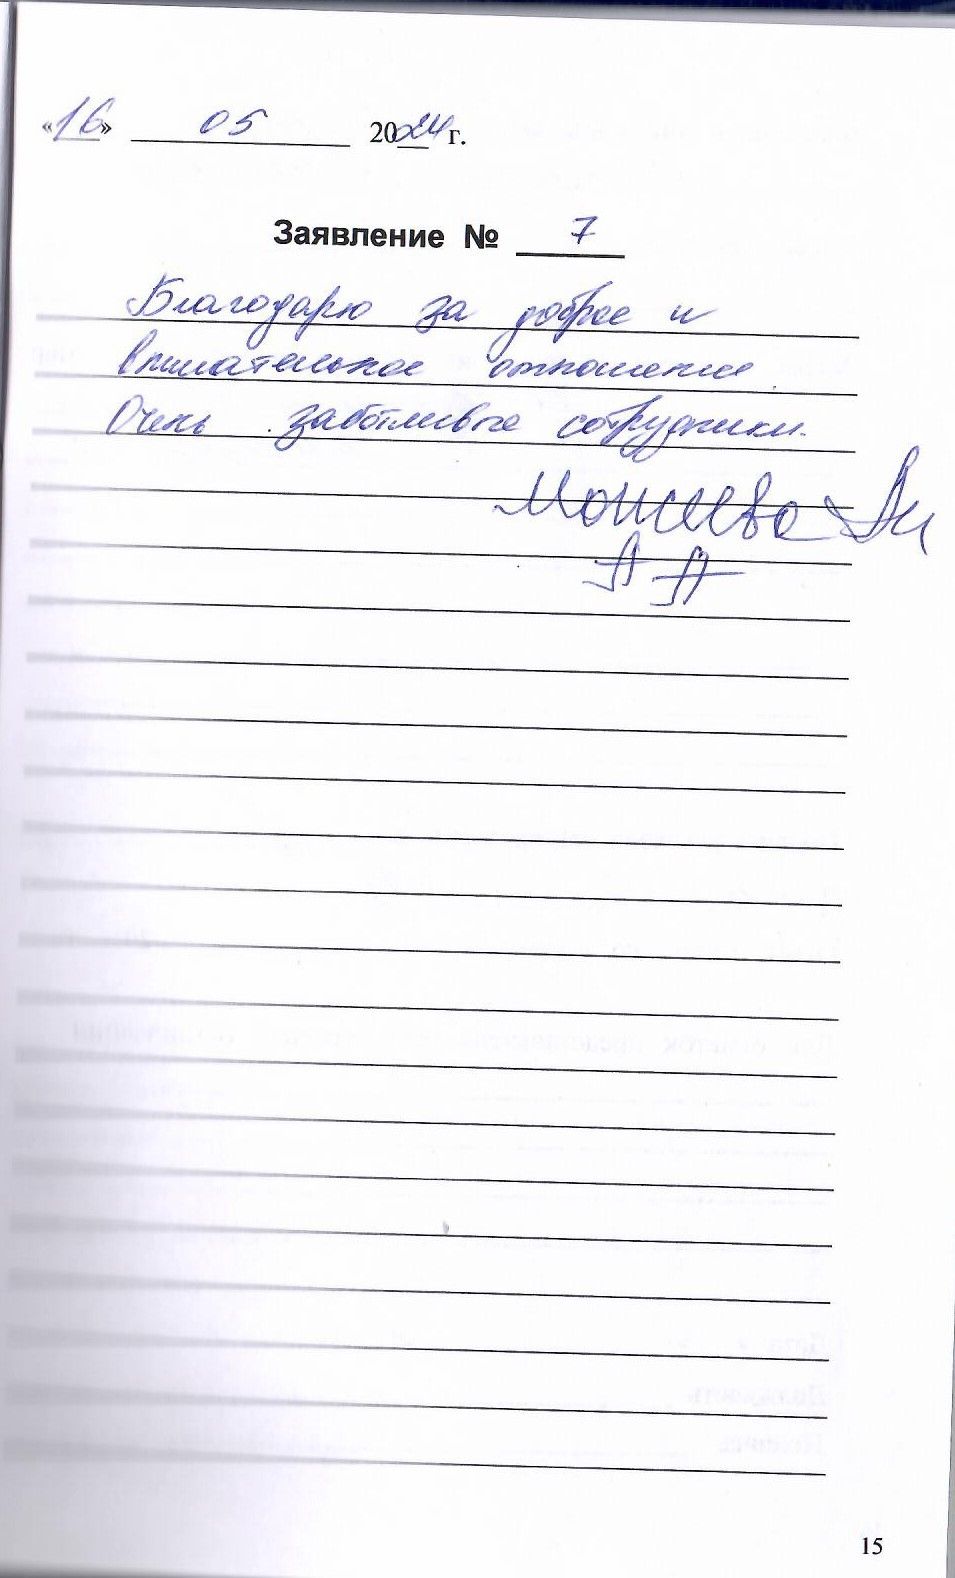 «16» 05 2024 г.
Заявление № 7
Благодарю за доброе и
внимательное отношение.
Очень заботливые сотрудники.
Моисеева
А А
15